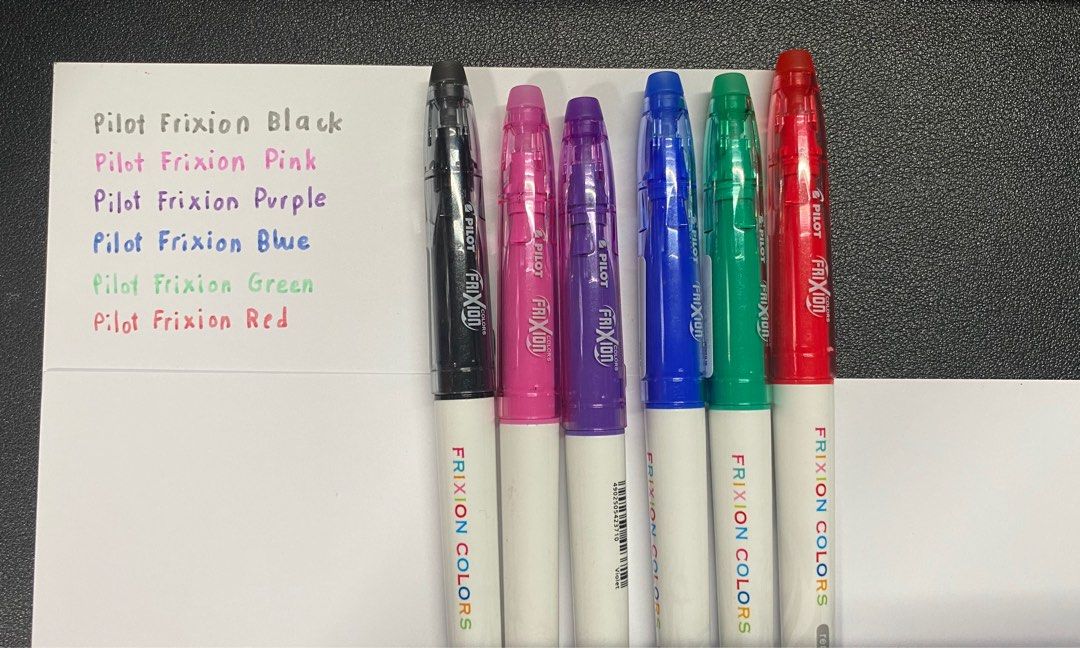 Pilot Frixion Black
Pilot Frixion Pink
Pilot Frixion Purple
Pilot Frixion Blue
Pilot Frixion Green
Pilot Frixion Red
PILOT
FRIXION COLORS
FRIXION COLORS
PILOT
FRIXION COLORS
PILOT
FRIXION COLORS
4902505423710
Violet
PILOT
FRIXION
FRIXION COLORS
PILOT
FRIXION
FRIXION COLORS
PILOT
FRIXION COLORS
FRIXION COLORS